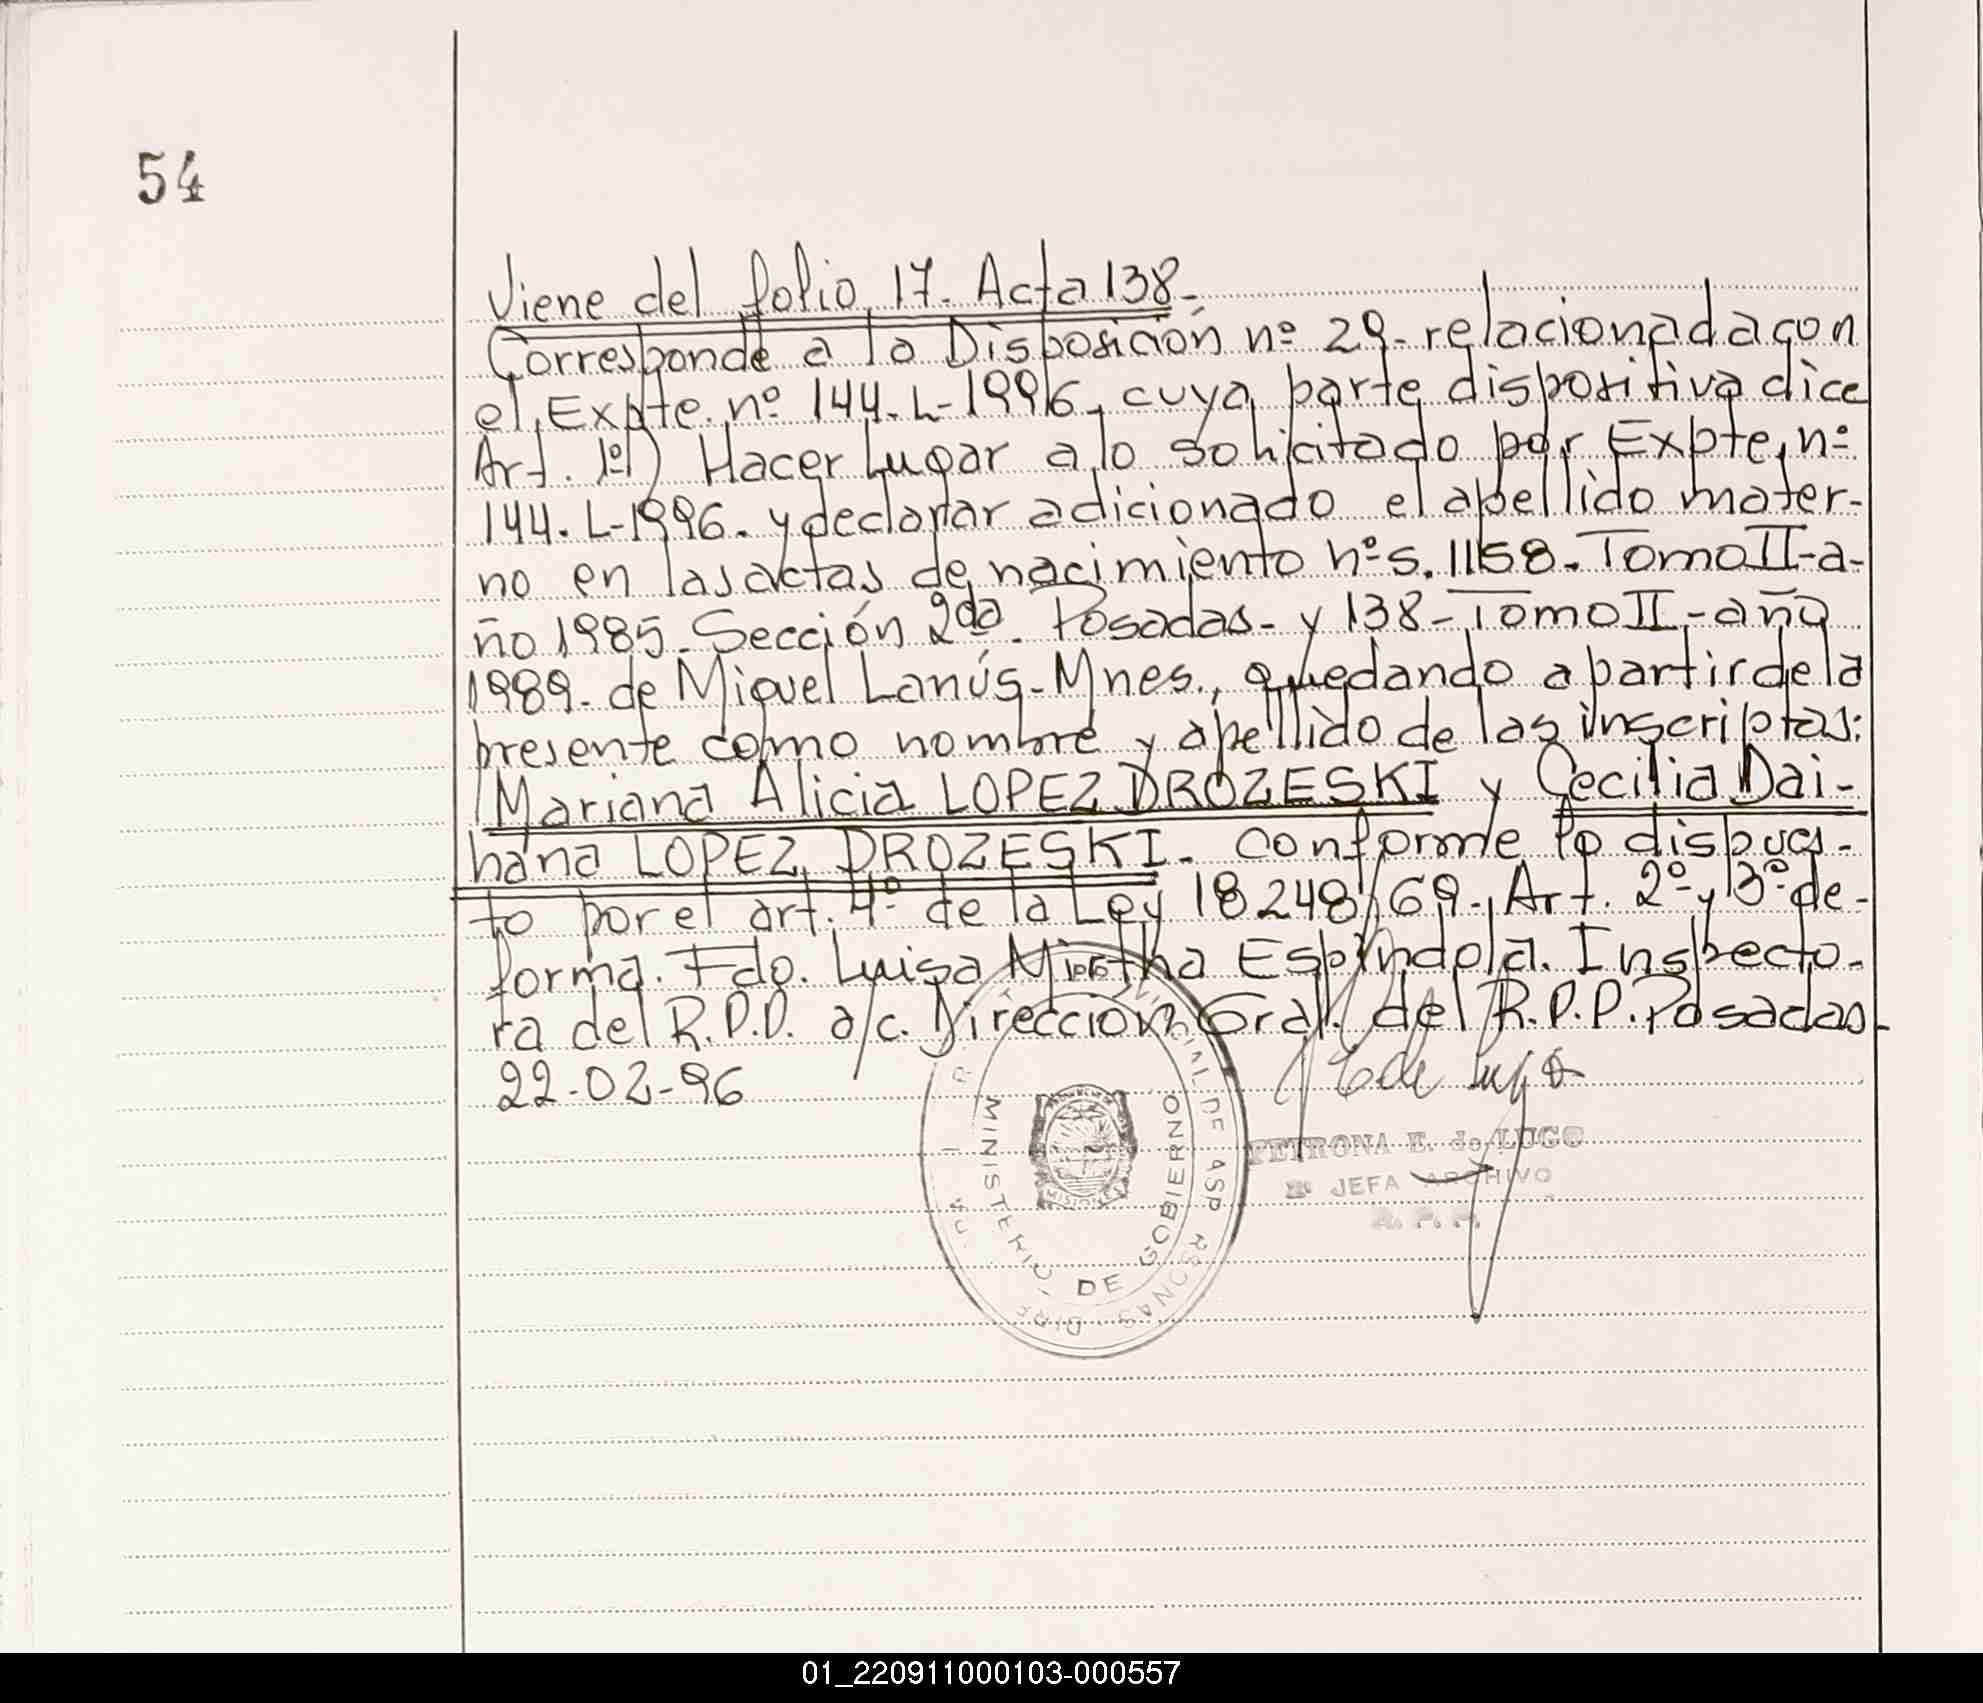 54
Viene del folio 17. Acta 138.-
Corresponde a la Disposición nº 29- relacionada con
el Expte. nº 144. L-1996, cuya parte dispositiva dice
Art. 1º) Hacer Lugar a lo solicitado por Expte. nº
144. L-1996. y declarar adicionado el apellido mater-
no en las actas de nacimiento nºs. 1158. Tomo II-a-
ño 1985. Sección 2da. Posadas- y 138- Tomo II-año
1989- de Miguel Lanús-Mnes., quedando a partir de la
presente como nombre y apellido de las inscriptas:
Mariana Alicia LOPEZ DROZESKI y Cecilia Dai-
hana LOPEZ DROZESKI. conforme lo dispues-
to por el art. 4º de la Ley 18248/69-, Art. 2º y 3º de-
forma. Fdo. Luisa Mirtha Espíndola. Inspecto-
ra del R.P.P. a/c. Dirección Gral. del R.P.P. Posadas-
22-02-96
MINISTERIO DE GOBIERNO
MISIONES
PETRONA E. de LUGO
JEFA ARCHIVO
01_220911000103-000557